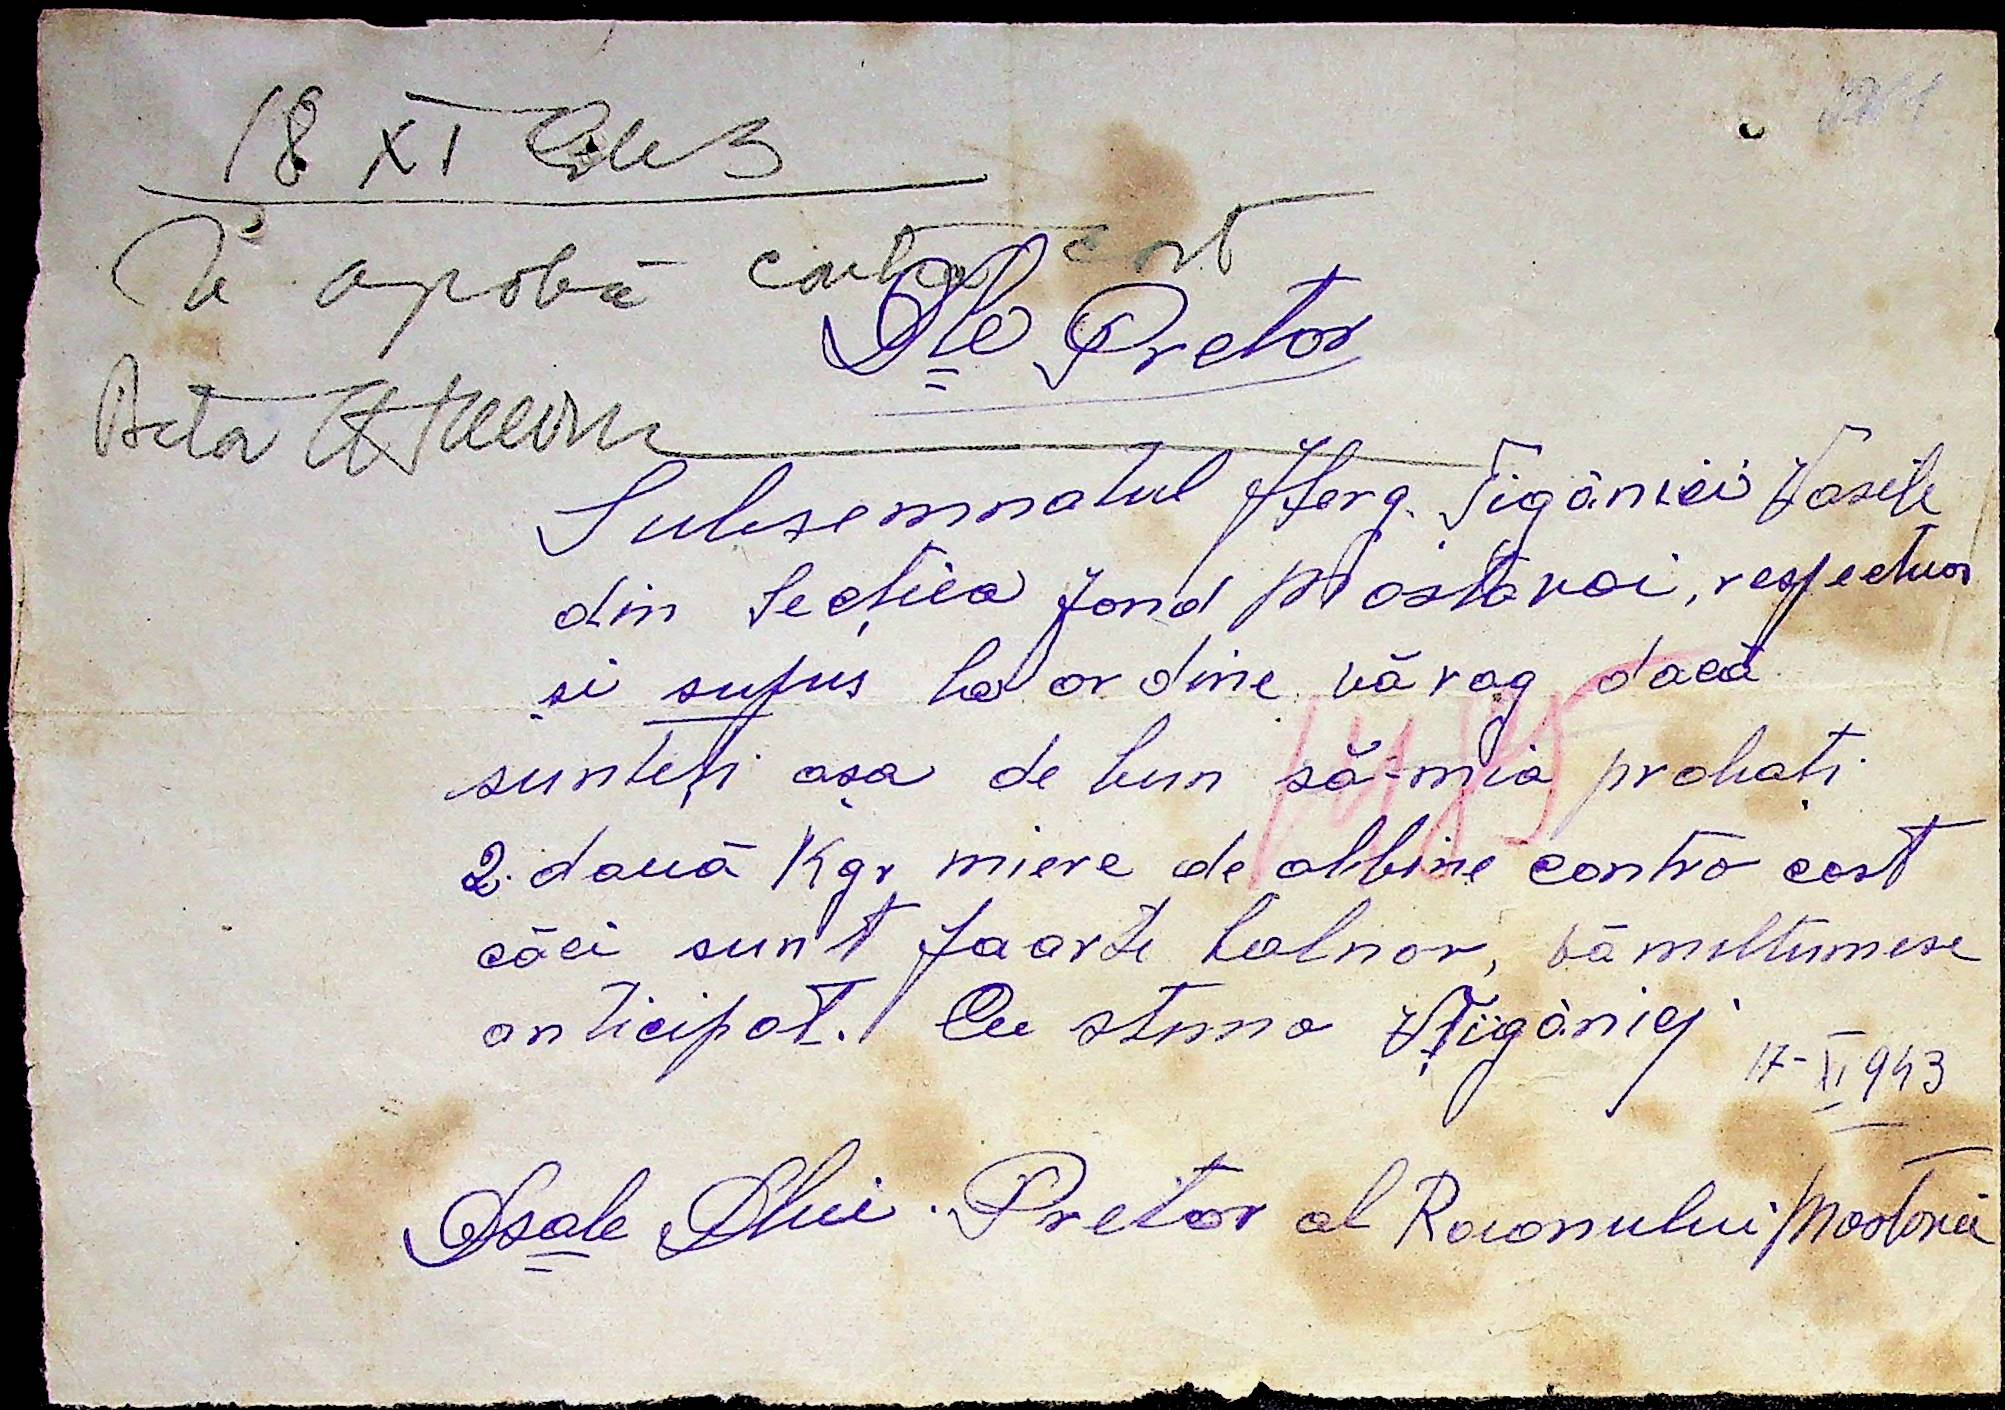 18 XI
Se aprobă contra cost
Dle Pretor
Subsemnatul Serg. Țigănici Vasile
din Secția Jand Mostavoi, respectuos
și supus la ordine vă rog dacă
sunteți așa de bun să-mia probați
2. două Kgr miere de albine contra cost
căci sunt foarte bolnav, vă multumesc
anticipat. Cu stima VȚigănici
17-XI 943
Dsale Dlui. Pretor al Raionului Mostovoi